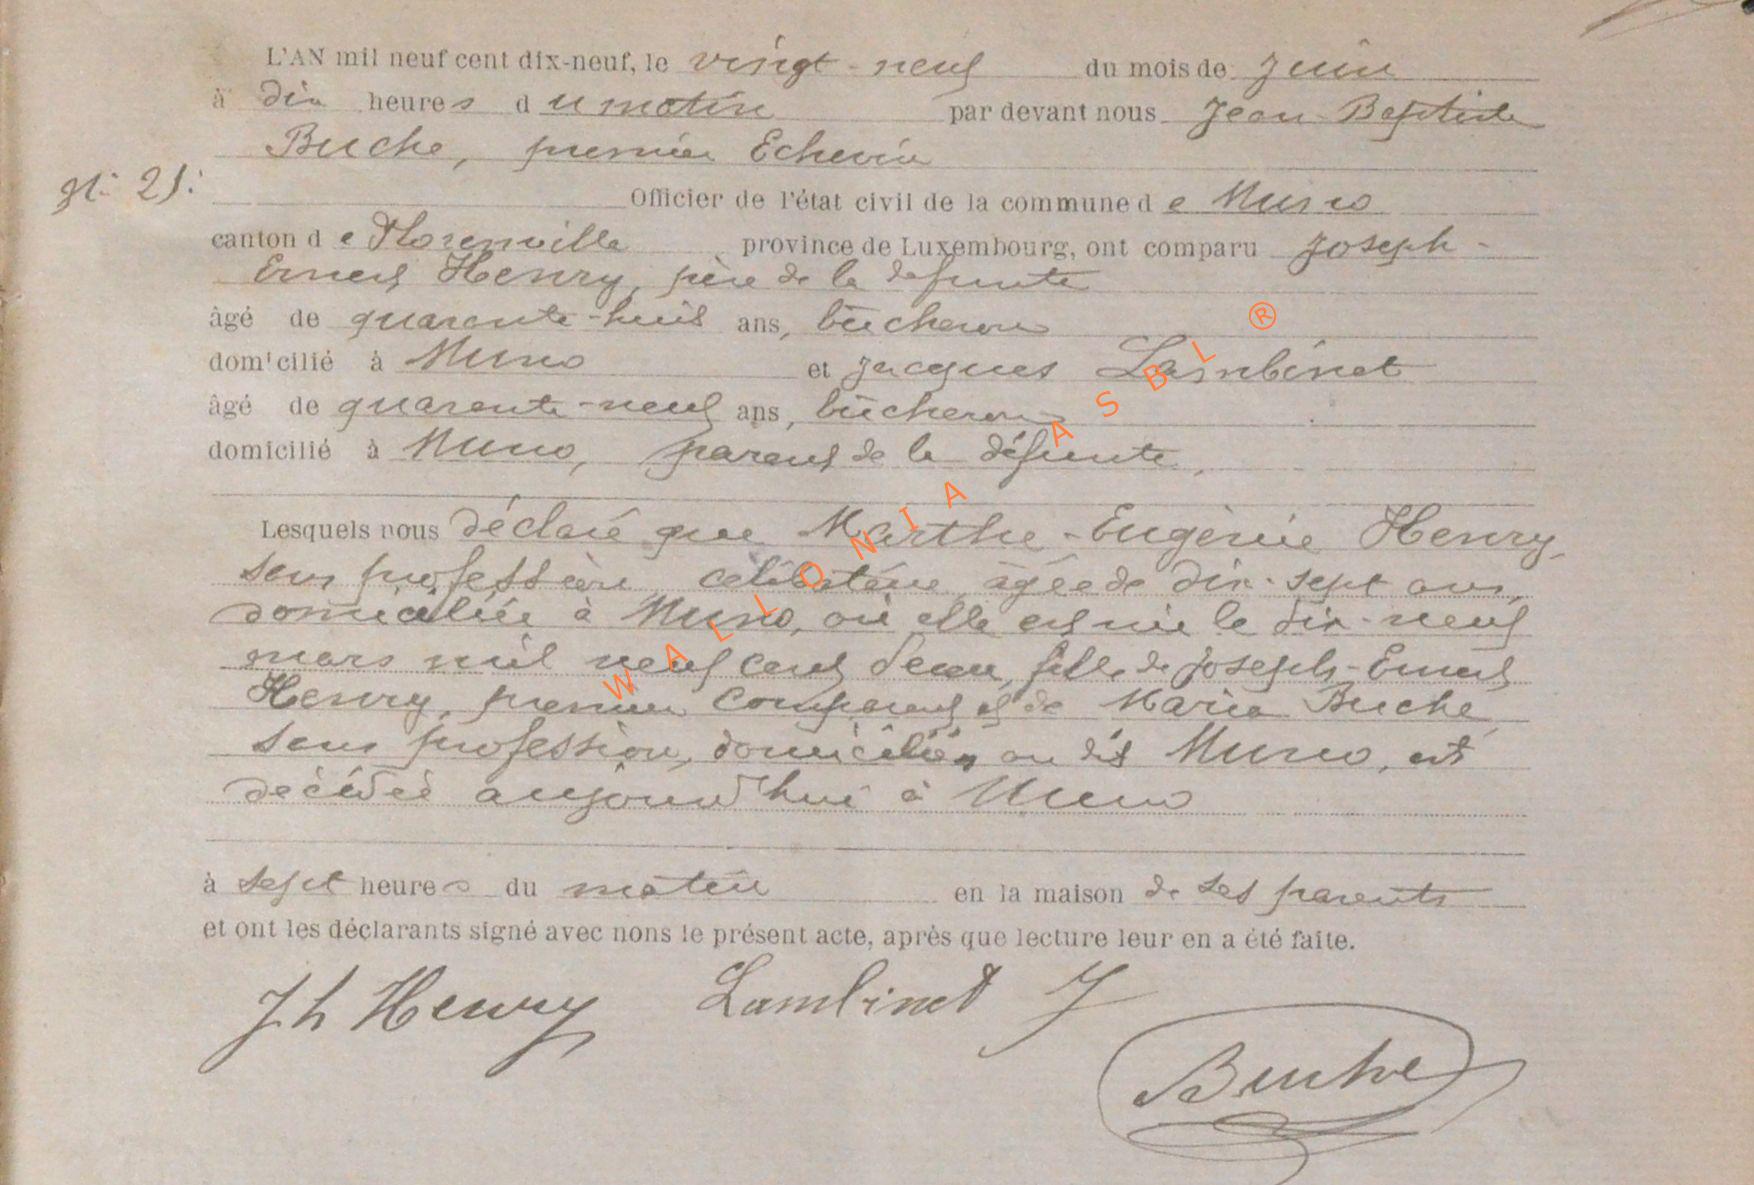 L'AN mil neuf cent dix-neuf, le vingt-neuf du mois de Juin
à dix heures du matin par devant nous Jean Baptiste
Buche, premier Echevin
N° 21.
Officier de l'état civil de la commune de Muno
canton de Florenville province de Luxembourg, ont comparu Joseph-
Ernest Henry, père de la défunte
âgé de quarante-huit ans, bûcheron
domicilié à Muno et Jacques Lambinet
âgé de quarante-neuf ans, bûcheron
domicilié à Muno, parent de la défunte,
Lesquels nous déclaré que Marthe-Eugénie Henry,
sans profession, célibataire, âgée de dix-sept ans,
domiciliée à Muno, où elle est née le dix-neuf
mars mil neuf cent deux, fille de Joseph-Ernest
Henry, premier comparant et de Maria Buche,
sans profession, domiciliés au dit Muno, est
décédée aujourd'hui à Muno
à sept heures du matin en la maison de ses parents
et ont les déclarants signé avec nous le présent acte, après que lecture leur en a été faite.
Jh Henry Lambinet J
Buche
WALLONIA ASBL ®